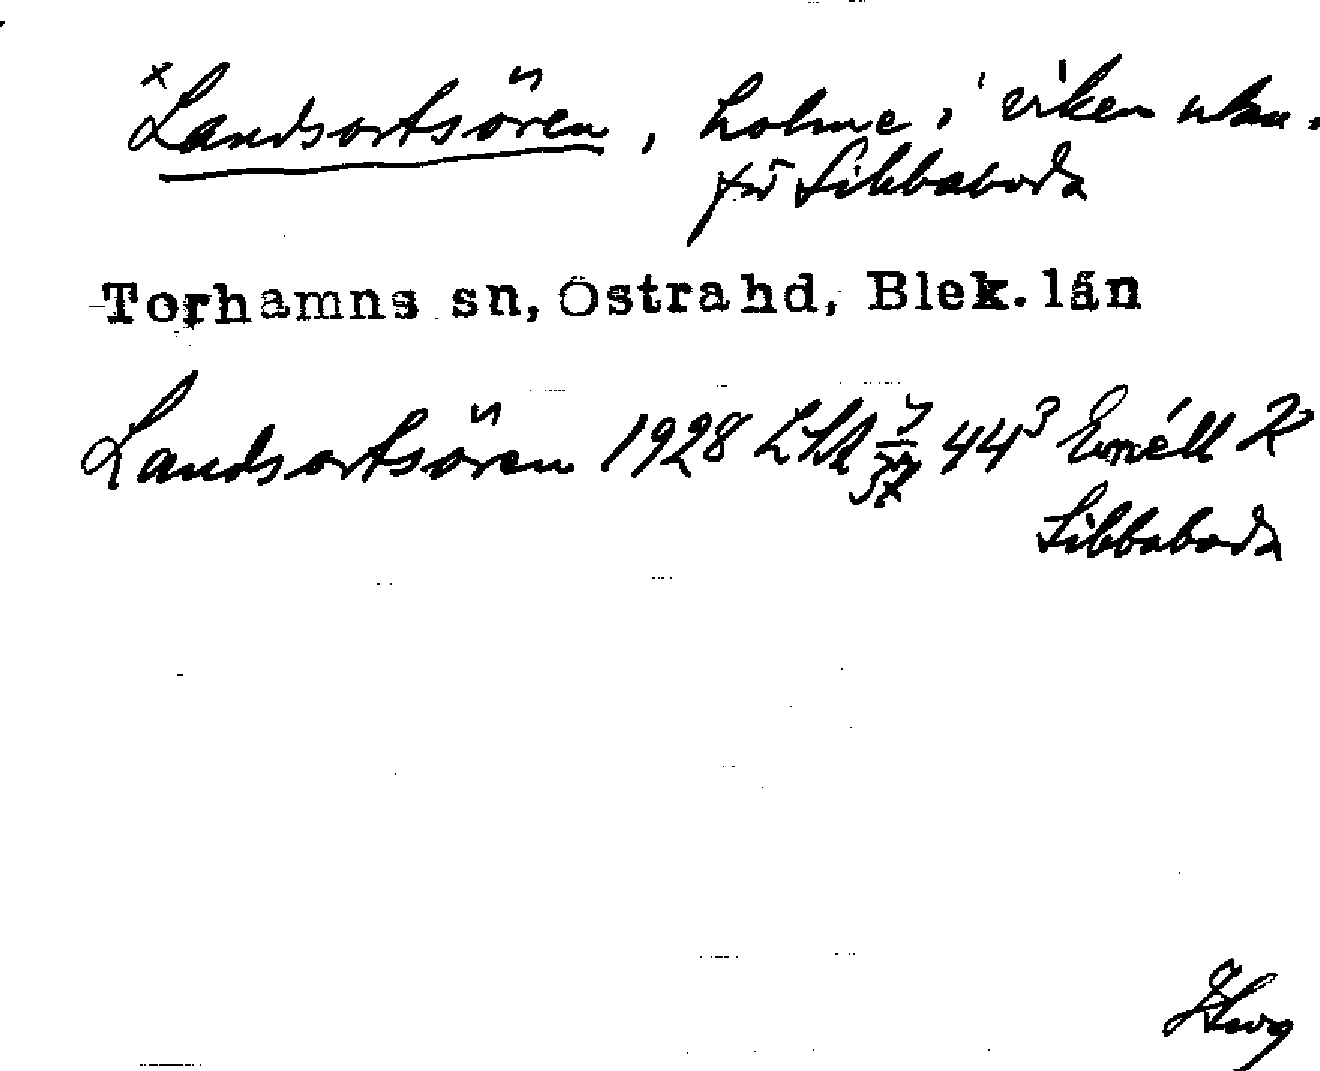 x Landsortsören, holme i viken utan-
för Sibbaboda
Torhamns sn, Östra hd, Blek. län
Landsortsören 1928 44³ K
Sibbaboda